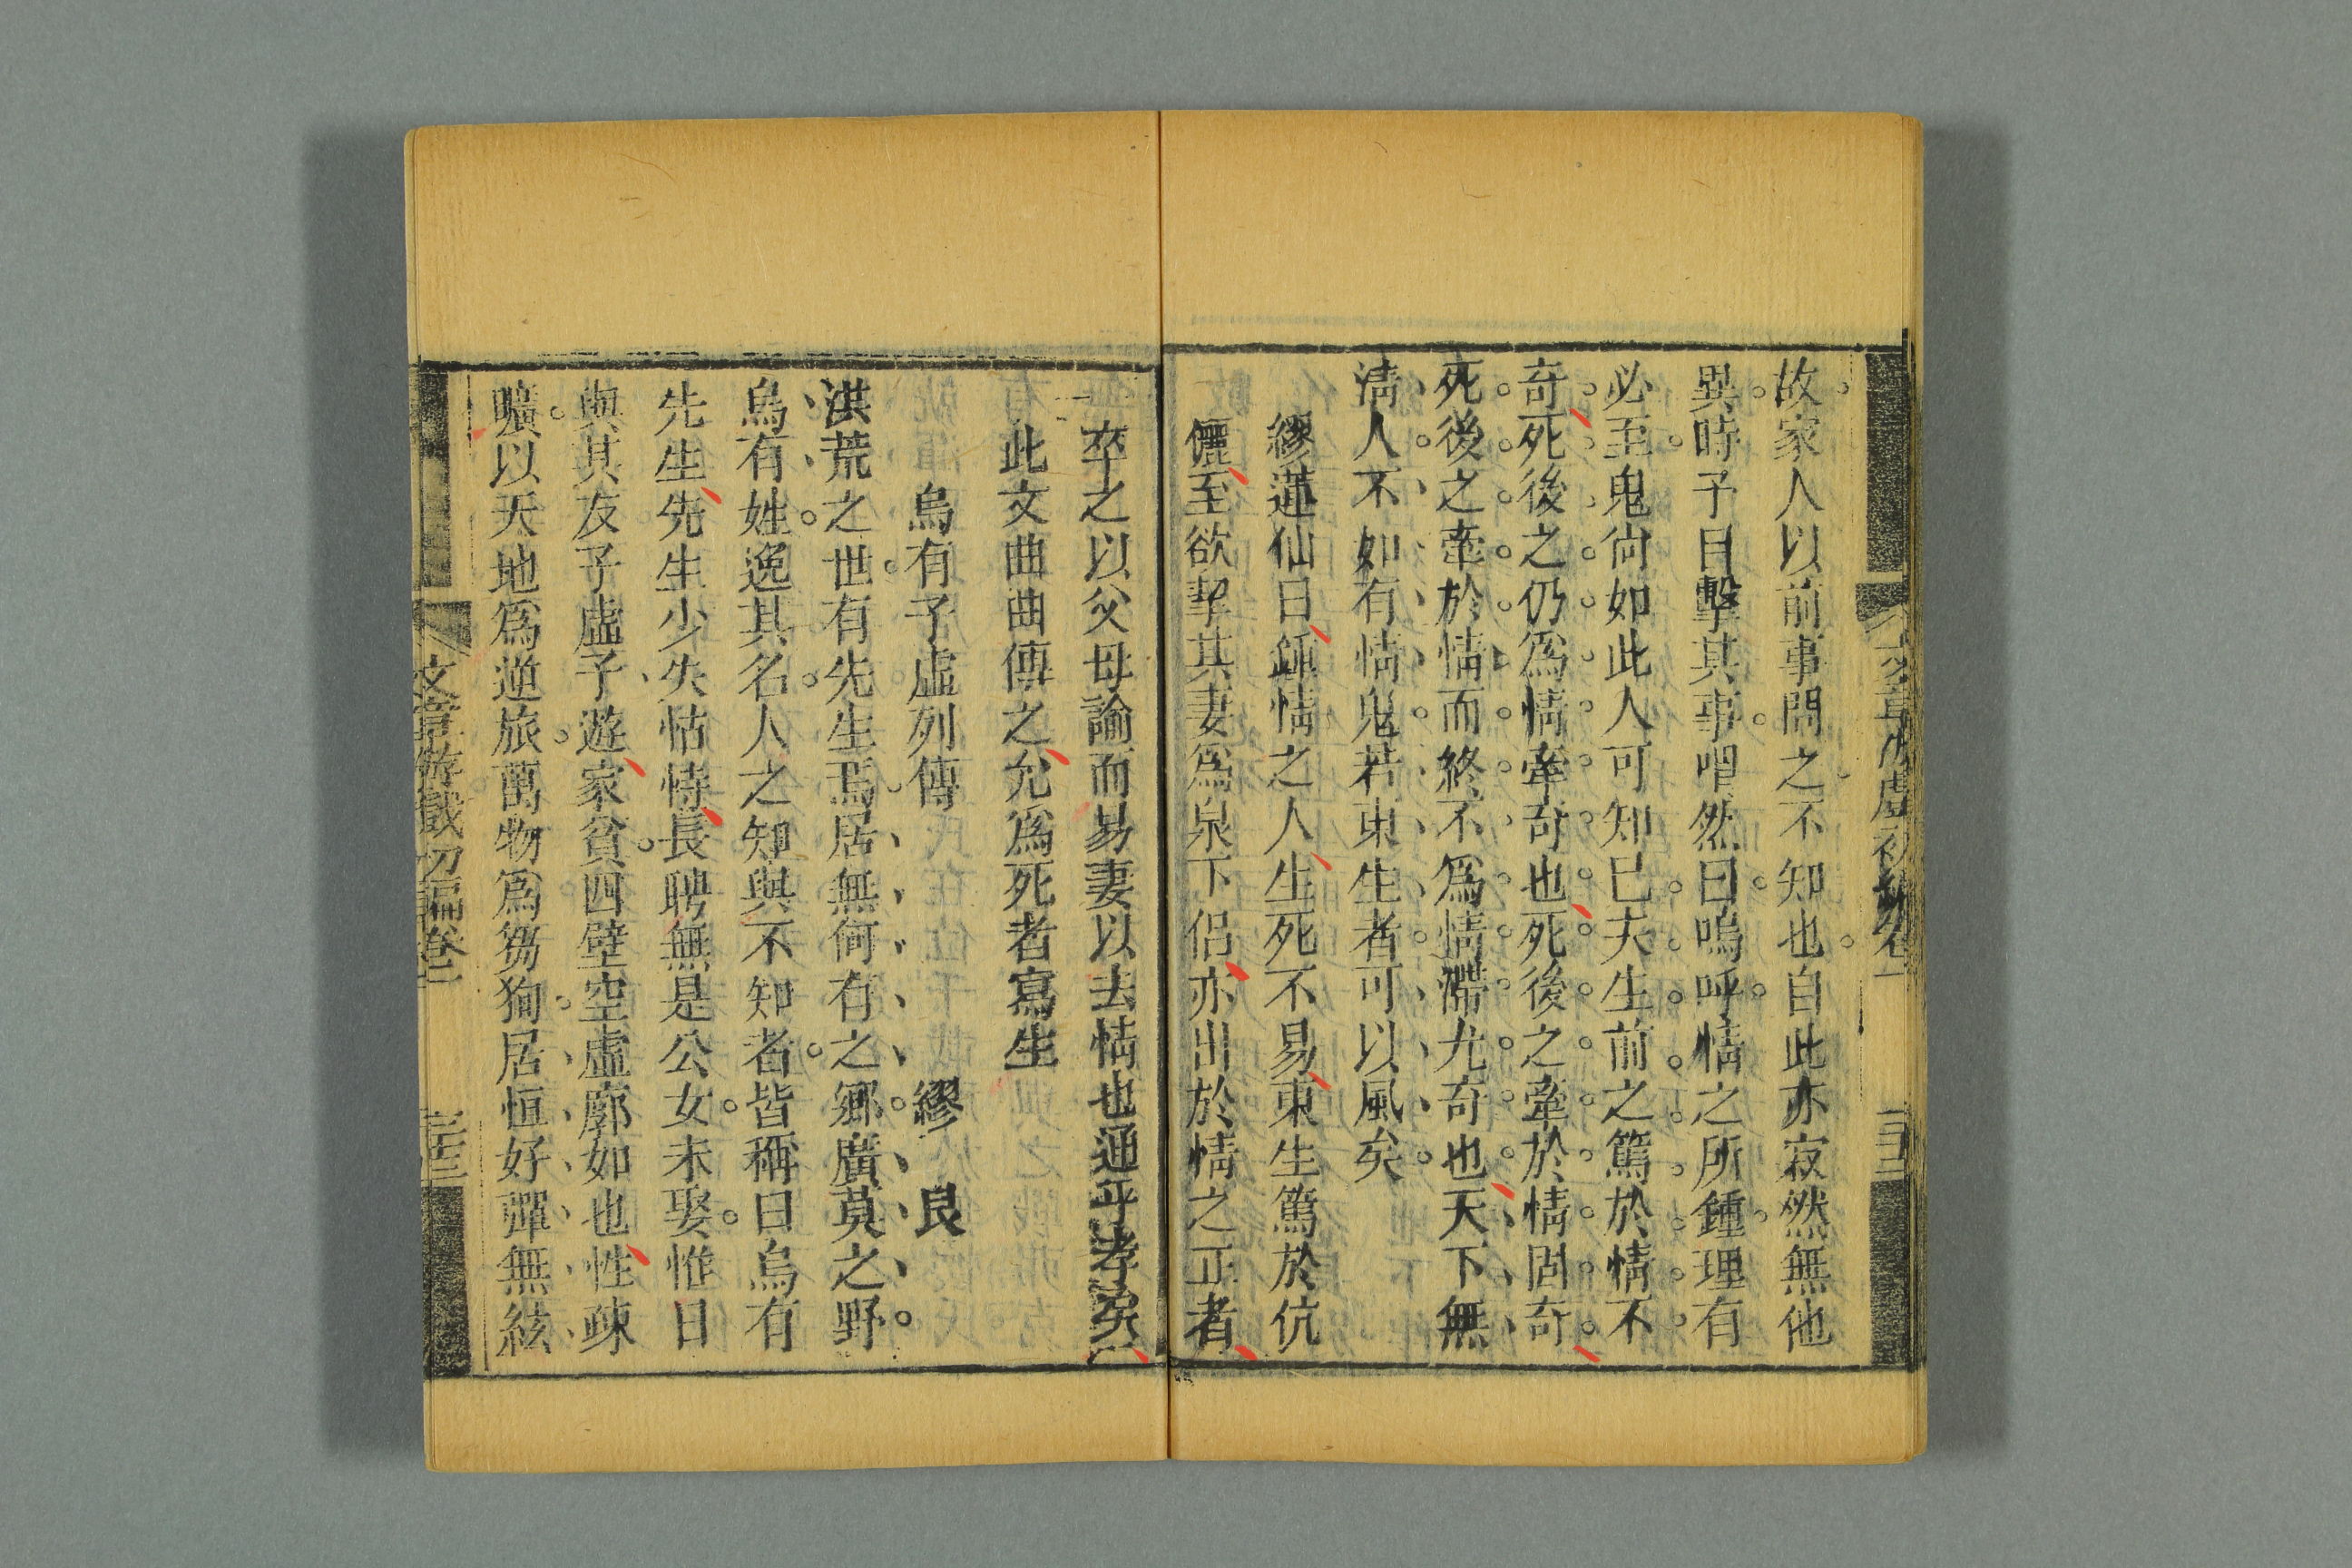 故家人以前事問之不知也自此亦寂然無他
異時予目擊其事喟然曰嗚呼情之所鍾理有
必至鬼尙如此人可知已夫生前之篤於情不
奇死後之仍爲情牽奇也死後之牽於情固奇
死後之牽於情而終不爲情滯尤奇也天下無
淸人不如有情鬼若東生者可以風矣
繆蓮仙曰鍾情之人生死不易東生篤於伉
儷至欲挈其妻爲泉下侶亦出於情之正者
卒之以父母諭而易妻以去情也通乎孝矣
此文曲曲傳之允爲死者寫生
烏有子虛列傳
繆艮
洪荒之世有先生焉居無何有之鄉廣莫之野
烏有姓逸其名人之知與不知者皆稱曰烏有
先生先生少失怙恃長聘無是公女未娶惟日
與其友子虛子遊家貧四壁空虛廓如也性疎
曠以天地爲逆旅萬物爲芻狗居恒好彈無絃
文章游戲初編卷二